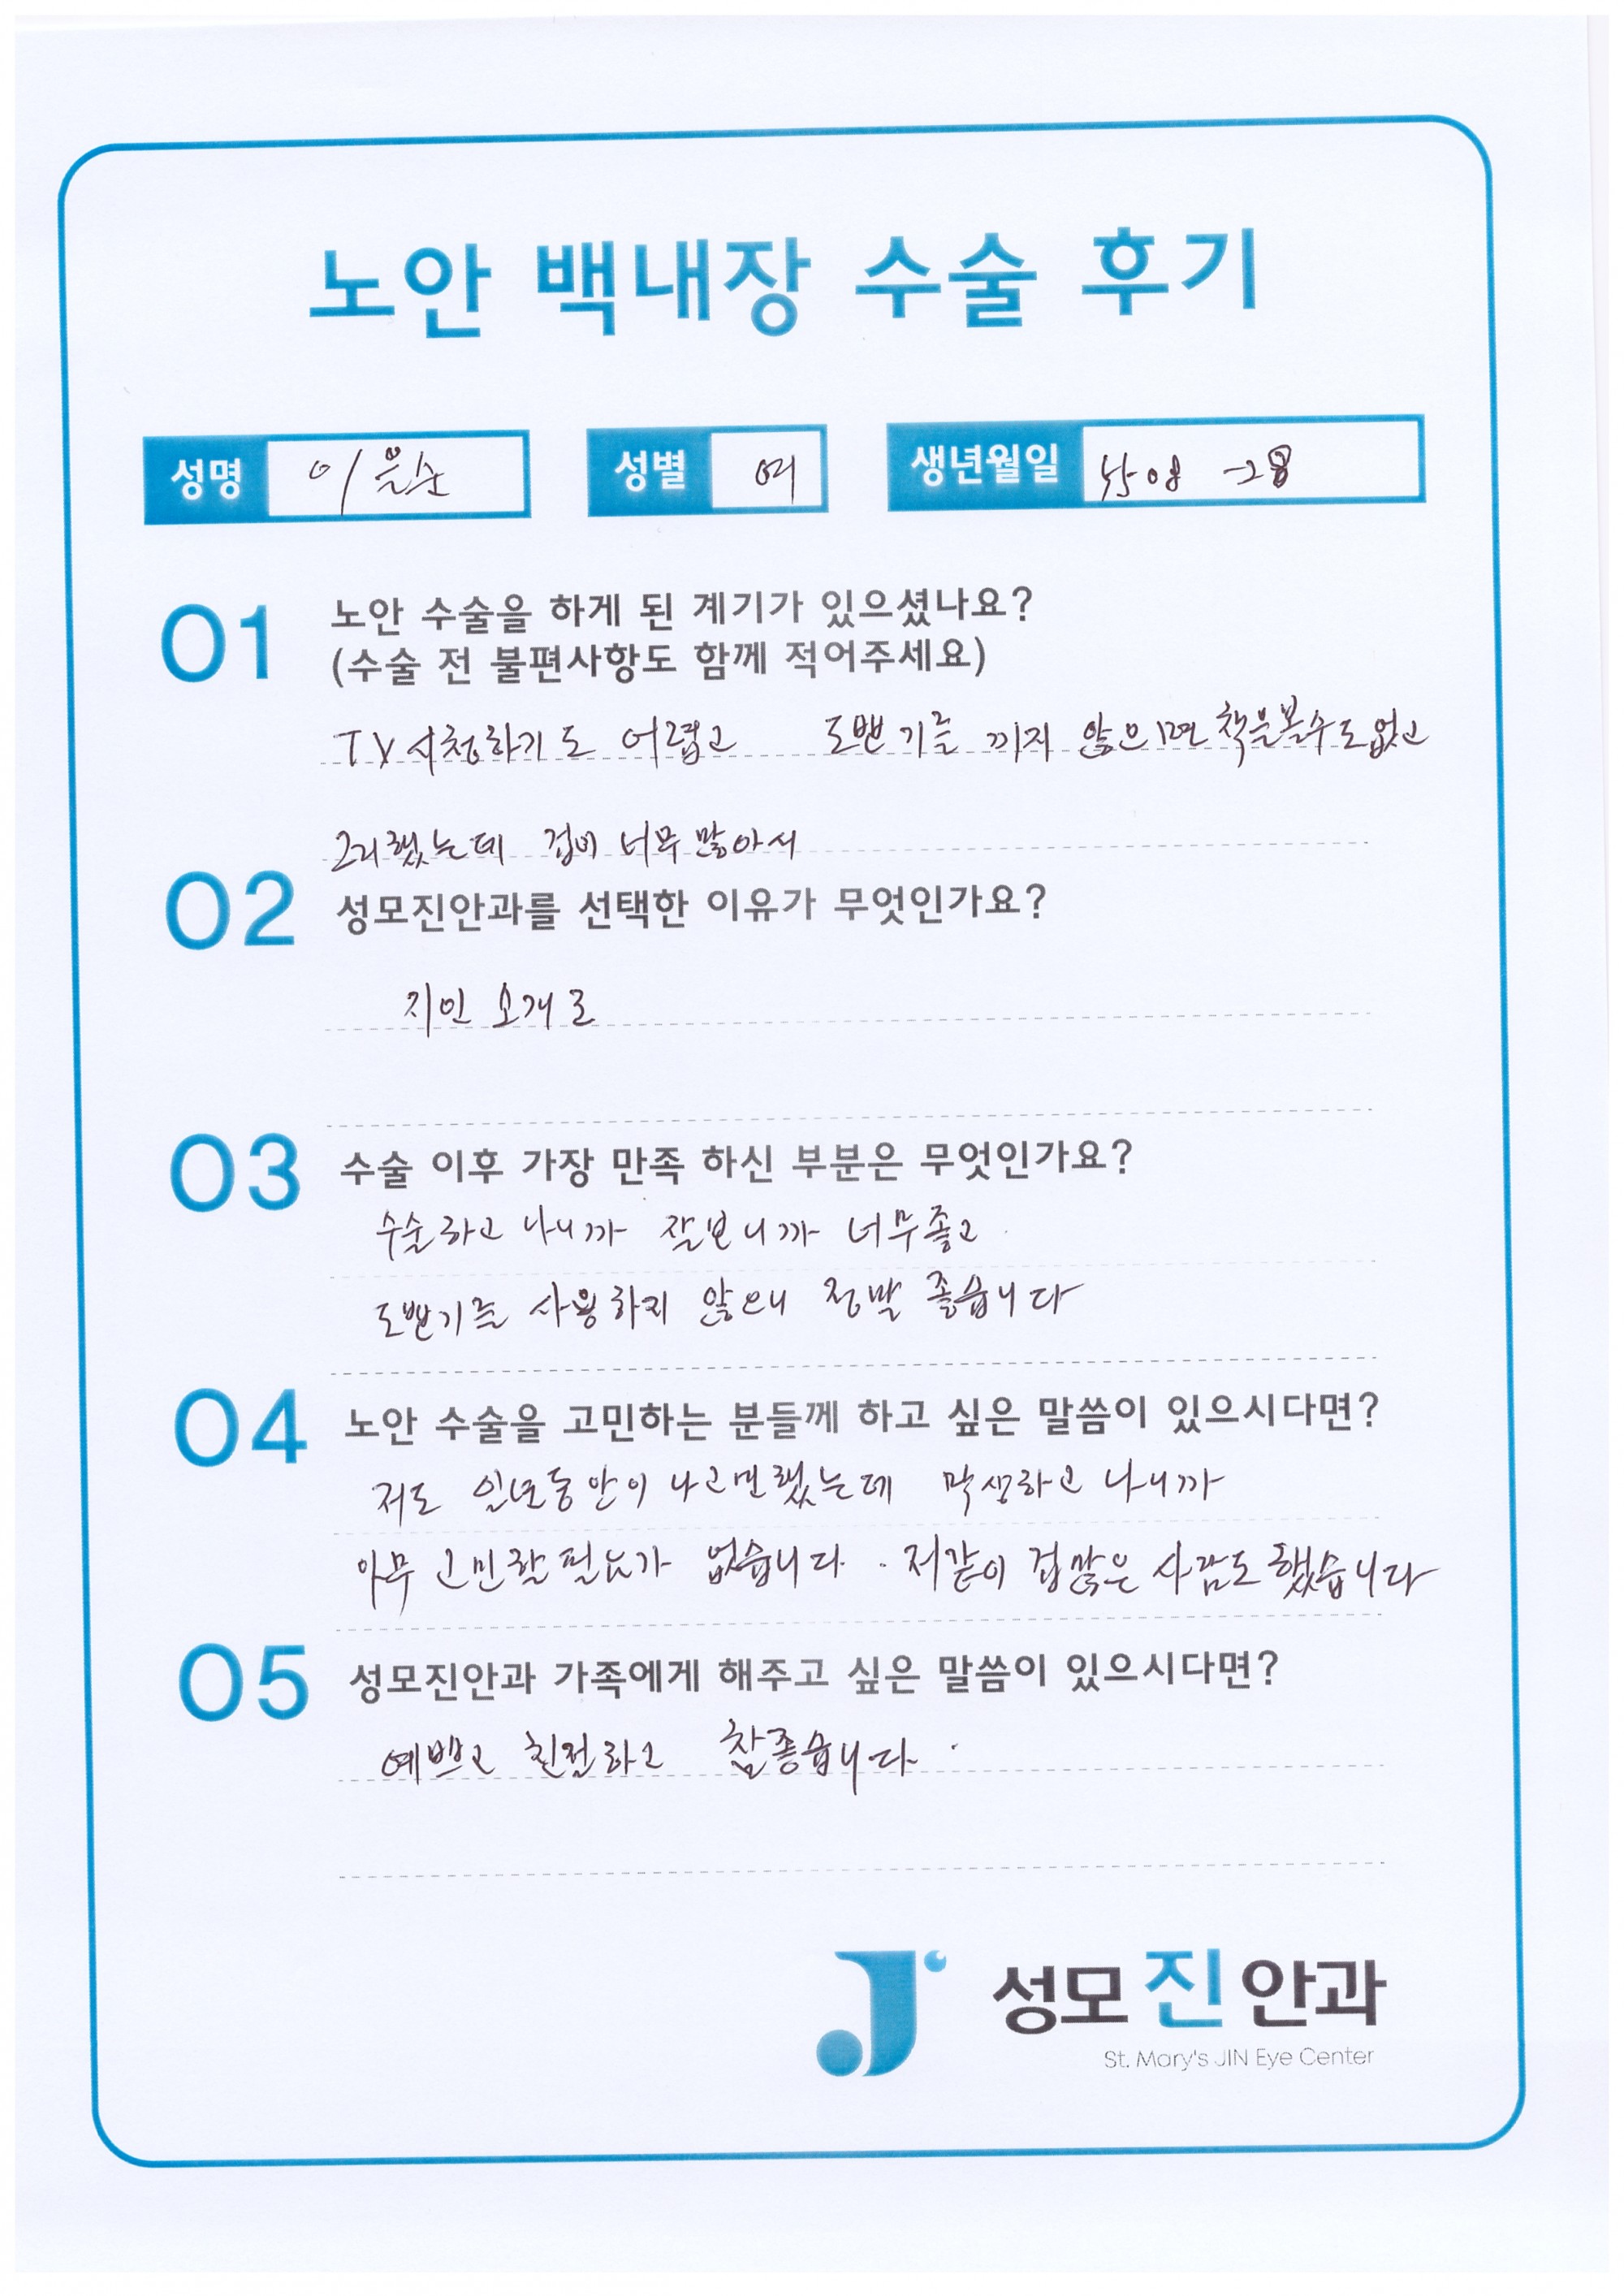 노안 백내장 수술 후기
성명 이을순 성별 여 생년월일
01 노안 수술을 하게 된 계기가 있으셨나요?
(수술 전 불편사항도 함께 적어주세요)
TV시청하기도 어렵고 도밴기를 끼지 않으면 책을볼수도없고
그리했는데 겁이 너무 많아서
02 성모진안과를 선택한 이유가 무엇인가요?
지인 소개로
03 수술 이후 가장 만족 하신 부분은 무엇인가요?
수술하고 나니까 잘보니까 너무좋고
도밴기를 사용하지 않으니 정말 좋습니다
04 노안 수술을 고민하는 분들께 하고 싶은 말씀이 있으시다면?
저도 일년동안이나고민했는데 막상하고 나니까
아무 고민할필요가 없습니다. 저같이 겁많은 사람도했습니다
05 성모진안과 가족에게 해주고 싶은 말씀이 있으시다면?
예쁘고 친절하고 참좋습니다.
성모진안과
St. Mary's JIN Eye Center